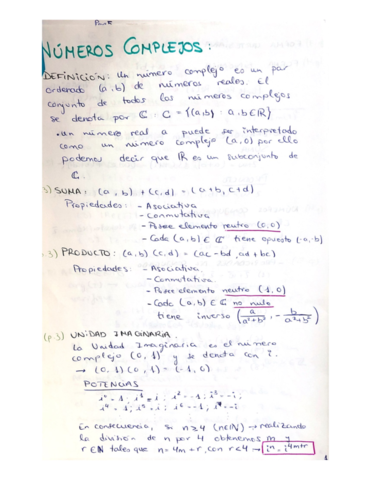 NÚMEROS COMPLEJOS:
DEFINICIÓN: Un número complejo es un par
ordenado (a,b) de números reales. El
conjunto de todos los números complejos
se denota por ℂ. ℂ = {(a,b) : a,b ∈ ℝ}
• Un número real a puede ser interpretado
como un número complejo (a,0) por ello
podemos decir que ℝ es un subconjunto de
ℂ.
) SUMA: (a,b) + (c,d) = (a+b, c+d)
Propiedades: - Asociativa
- Conmutativa
- Posee elemento neutro (0,0)
- Cada (a,b) ∈ ℂ tiene opuesto (-a,-b)
) PRODUCTO: (a,b) (c,d) = (ac - bd, ad + bc)
Propiedades: - Asociativa.
- Conmutativa
- Posee elemento neutro (1,0)
- Cada (a,b) ∈ ℂ no nulo
tiene inverso (a/a²+b², - b/a²+b²)
(p.3) UNIDAD IMAGINARIA.
La Unidad Imaginaria es el número
complejo (0,1) y se denota con i.
→ (0,1)(0,1) = (-1,0)
POTENCIAS
i⁰ = 1; i¹ = i; i² = -1; i³ = -i;
i⁴ = 1; i⁵ = i; i⁶ = -1; i⁷ = -i
En consecuencia, si n ≥ 4 (n∈ℕ) → realizando
la división de n por 4 obtenemos m y
r ∈ ℕ tales que n = 4m + r, con r < 4 → iⁿ = i⁴ᵐ⁺ʳ